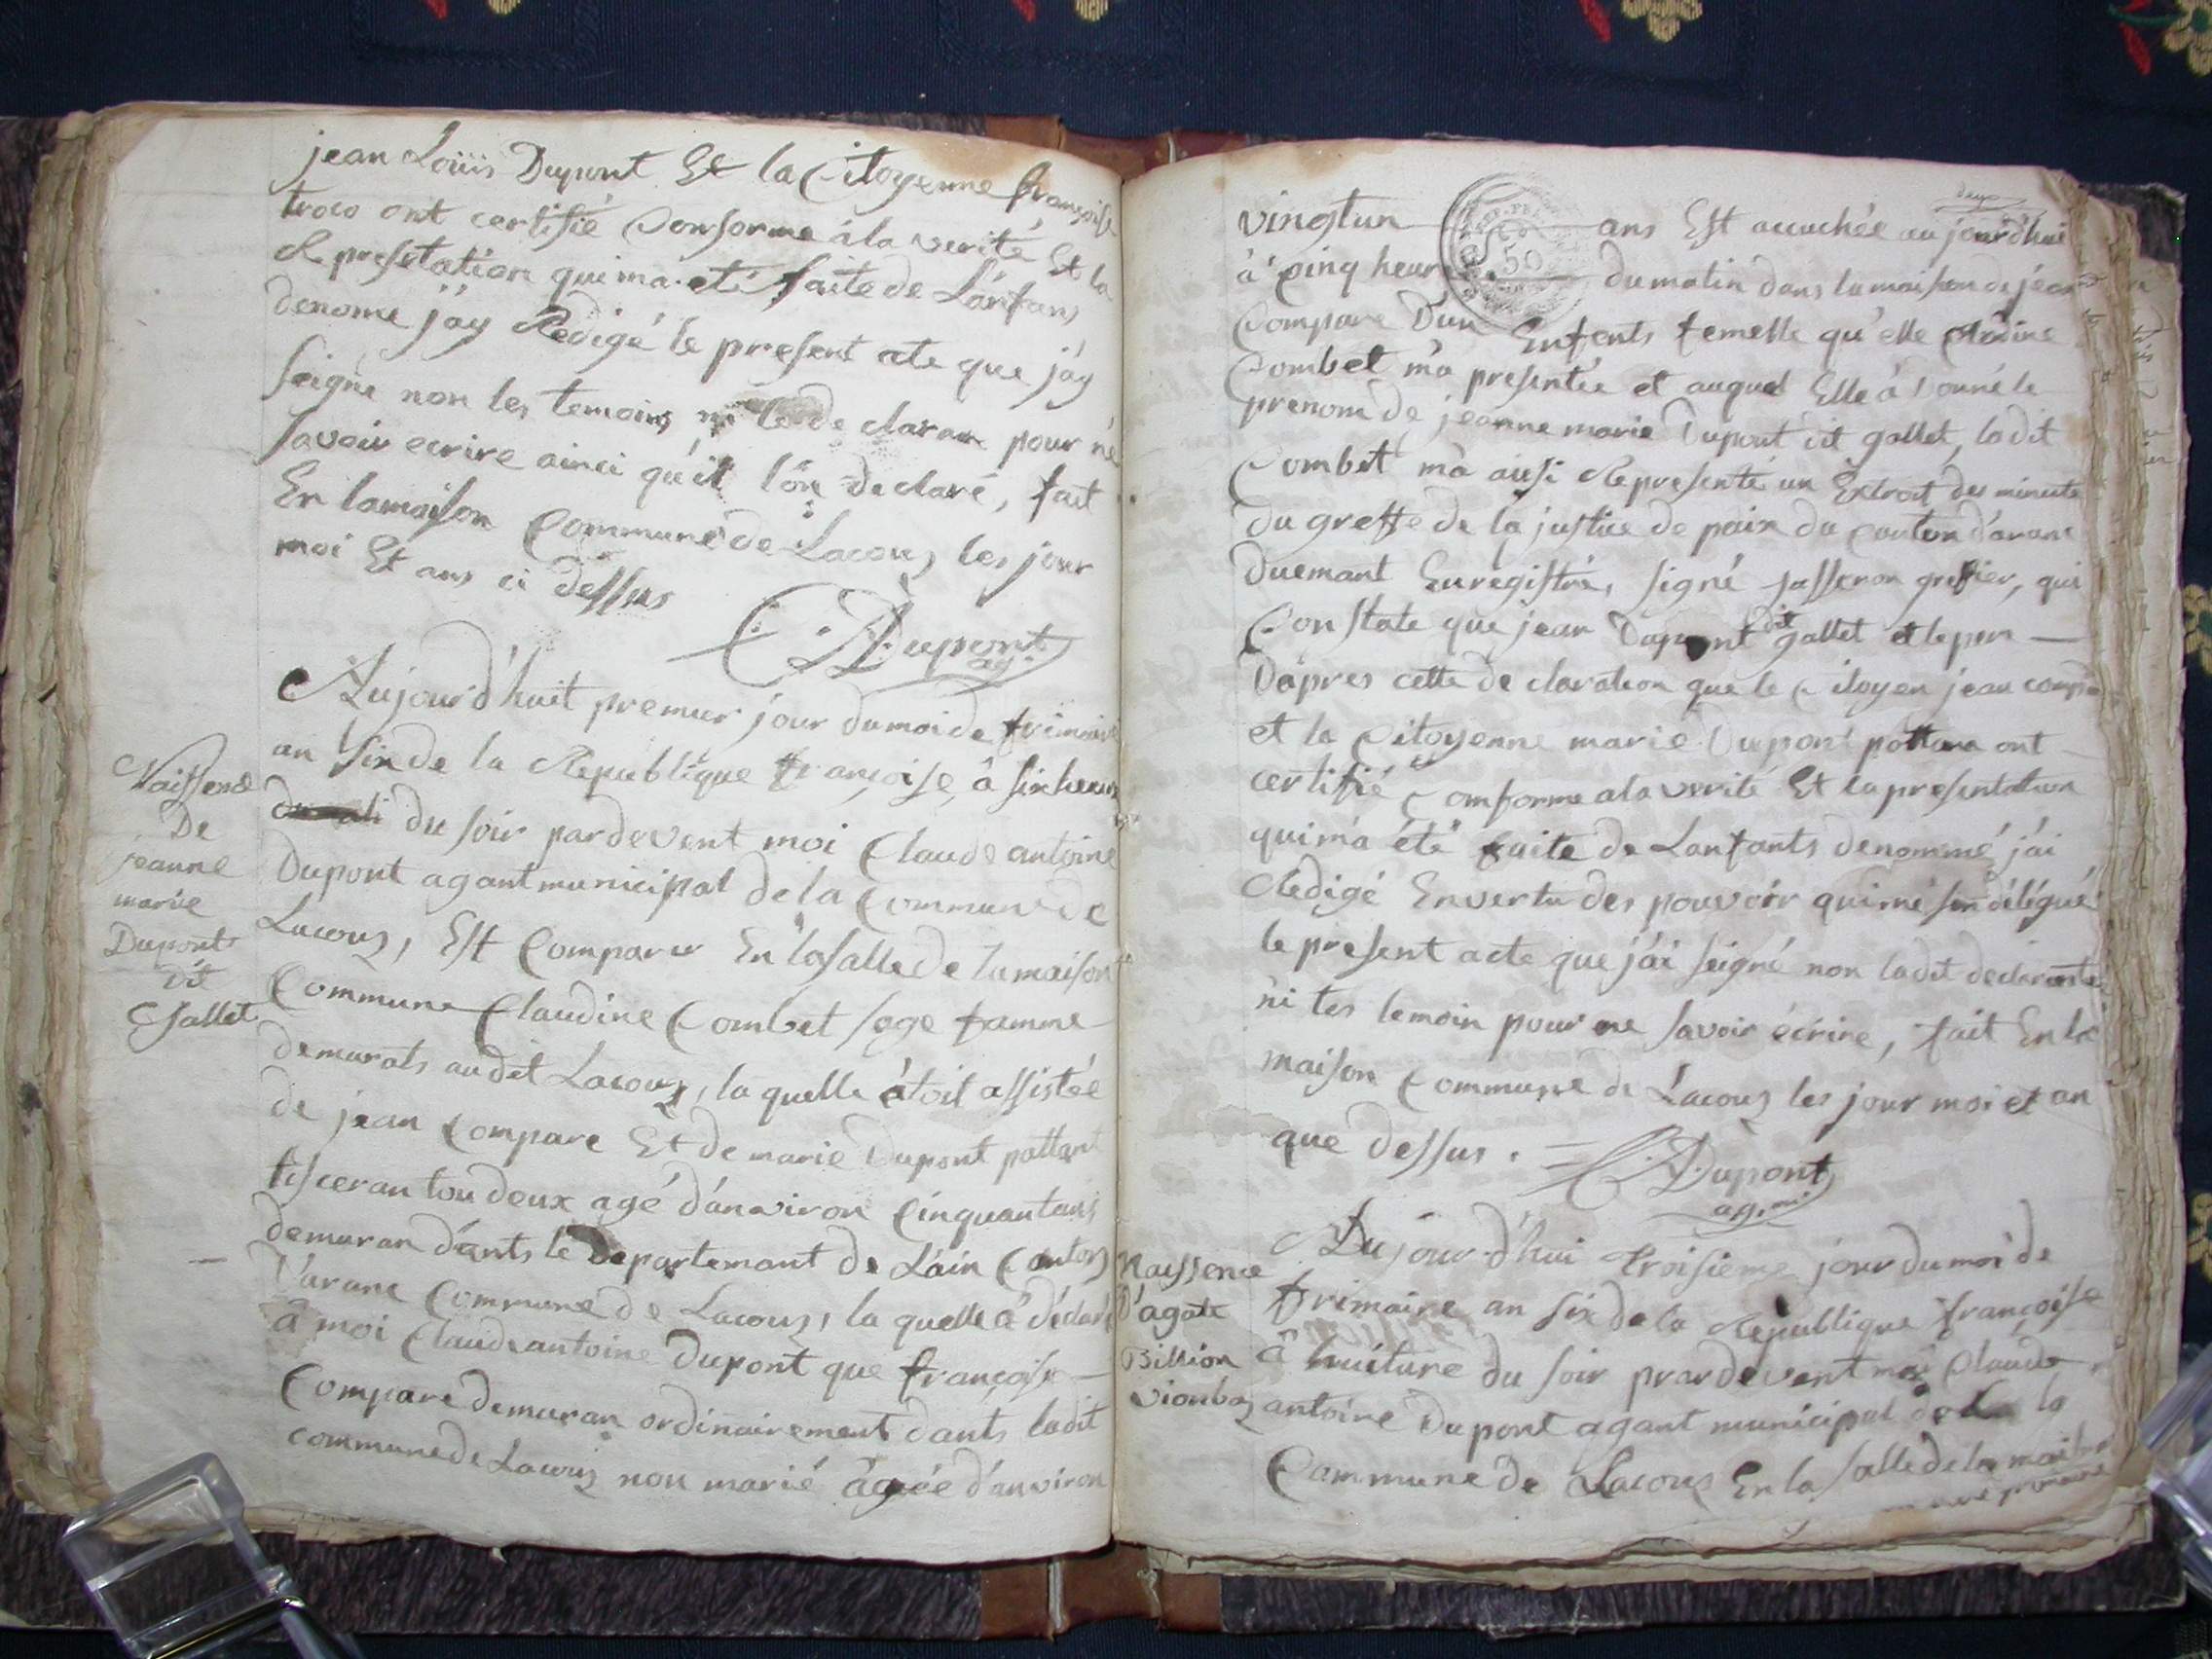 jean Loüis Dupont Et la Citoyenne françoise
troco ont certifié Conforme á la verité Et la
Represtation qui ma été faite de Lanfans
denome j'ay Redigé le present ate que j'ay
seigne non les temoins ni le declaran pour ne
savoir ecrire ainci qu'il l'on declaré, fait
En lamaison Commune de Lacoux les jour
moi Et ans ci dessus
CADupont
ag.
Naissence
De
jeanne
marie
Dupont
dit
Gallet
Aujourd'huit premier jour dumoide frimaire
an Six de la Republique françoise, à sixheure
du soir pardevent moi Claude antoine
Dupont agant municipal de la Commune de
Lacoux, Est Comparu En lasalle de lamaison
Commune Claudine Combet sage famme
demurats audit Lacoux, la quelle étoit assistée
de jean Compare Et de marie Dupont pattant
tisceran tou deux agé d'anviron Cinquantans
demuran dants le Departemant de L'ain Canton
D'aranc Commune de Lacoux, la quelle à déclaré
à moi Claudeantoine Dupont que françoise
Compare demuran ordinairement dants ladit
commune de Lacoux non marié âgée d'anviron
deux
vingtun ans Est accuchée aujourd'hui
à Cinq heure du matin dans lamaison de jean
Compare D'un Enfents femelle qu'elle Cladine
Combet m'a presentée et auquel Elle à Donné le
prenom de jeanne marie Dupont dit gallet, ladit
Combet m'a ausi Representé un Extrait des minute
du greffe de la justice de paix du Canton d'aranc
Duemant Enregistré, signé Jasseron greffier, qui
Constate que jean Dupont dit gallet et le per
D'apres cette declaration que le Citoyen jean compare
et la Citoyenne marie Dupont pattana ont
certifié Comforme a la verité Et la presentation
quim'a été faite de Lanfants denommé j'ai
Redigé En vertu des pouvoir quime son délégué
le present acte que j'ai seigné non ladit declarante
ni les temoin pour ne savoir écrire, fait En la
maison Commune de Lacoux les jour moi et an
que dessus.
CADupont
ag. mi
Naissence
D'agate
Billion
vionboz
Aujour-d'hui troisieme jour du moi de
frimaire an six de la Republique françoise
à huiture du soir prardevent moi Claude
antoine Dupont agant municipal de la
Commune de Lacoux En la salle de la maison